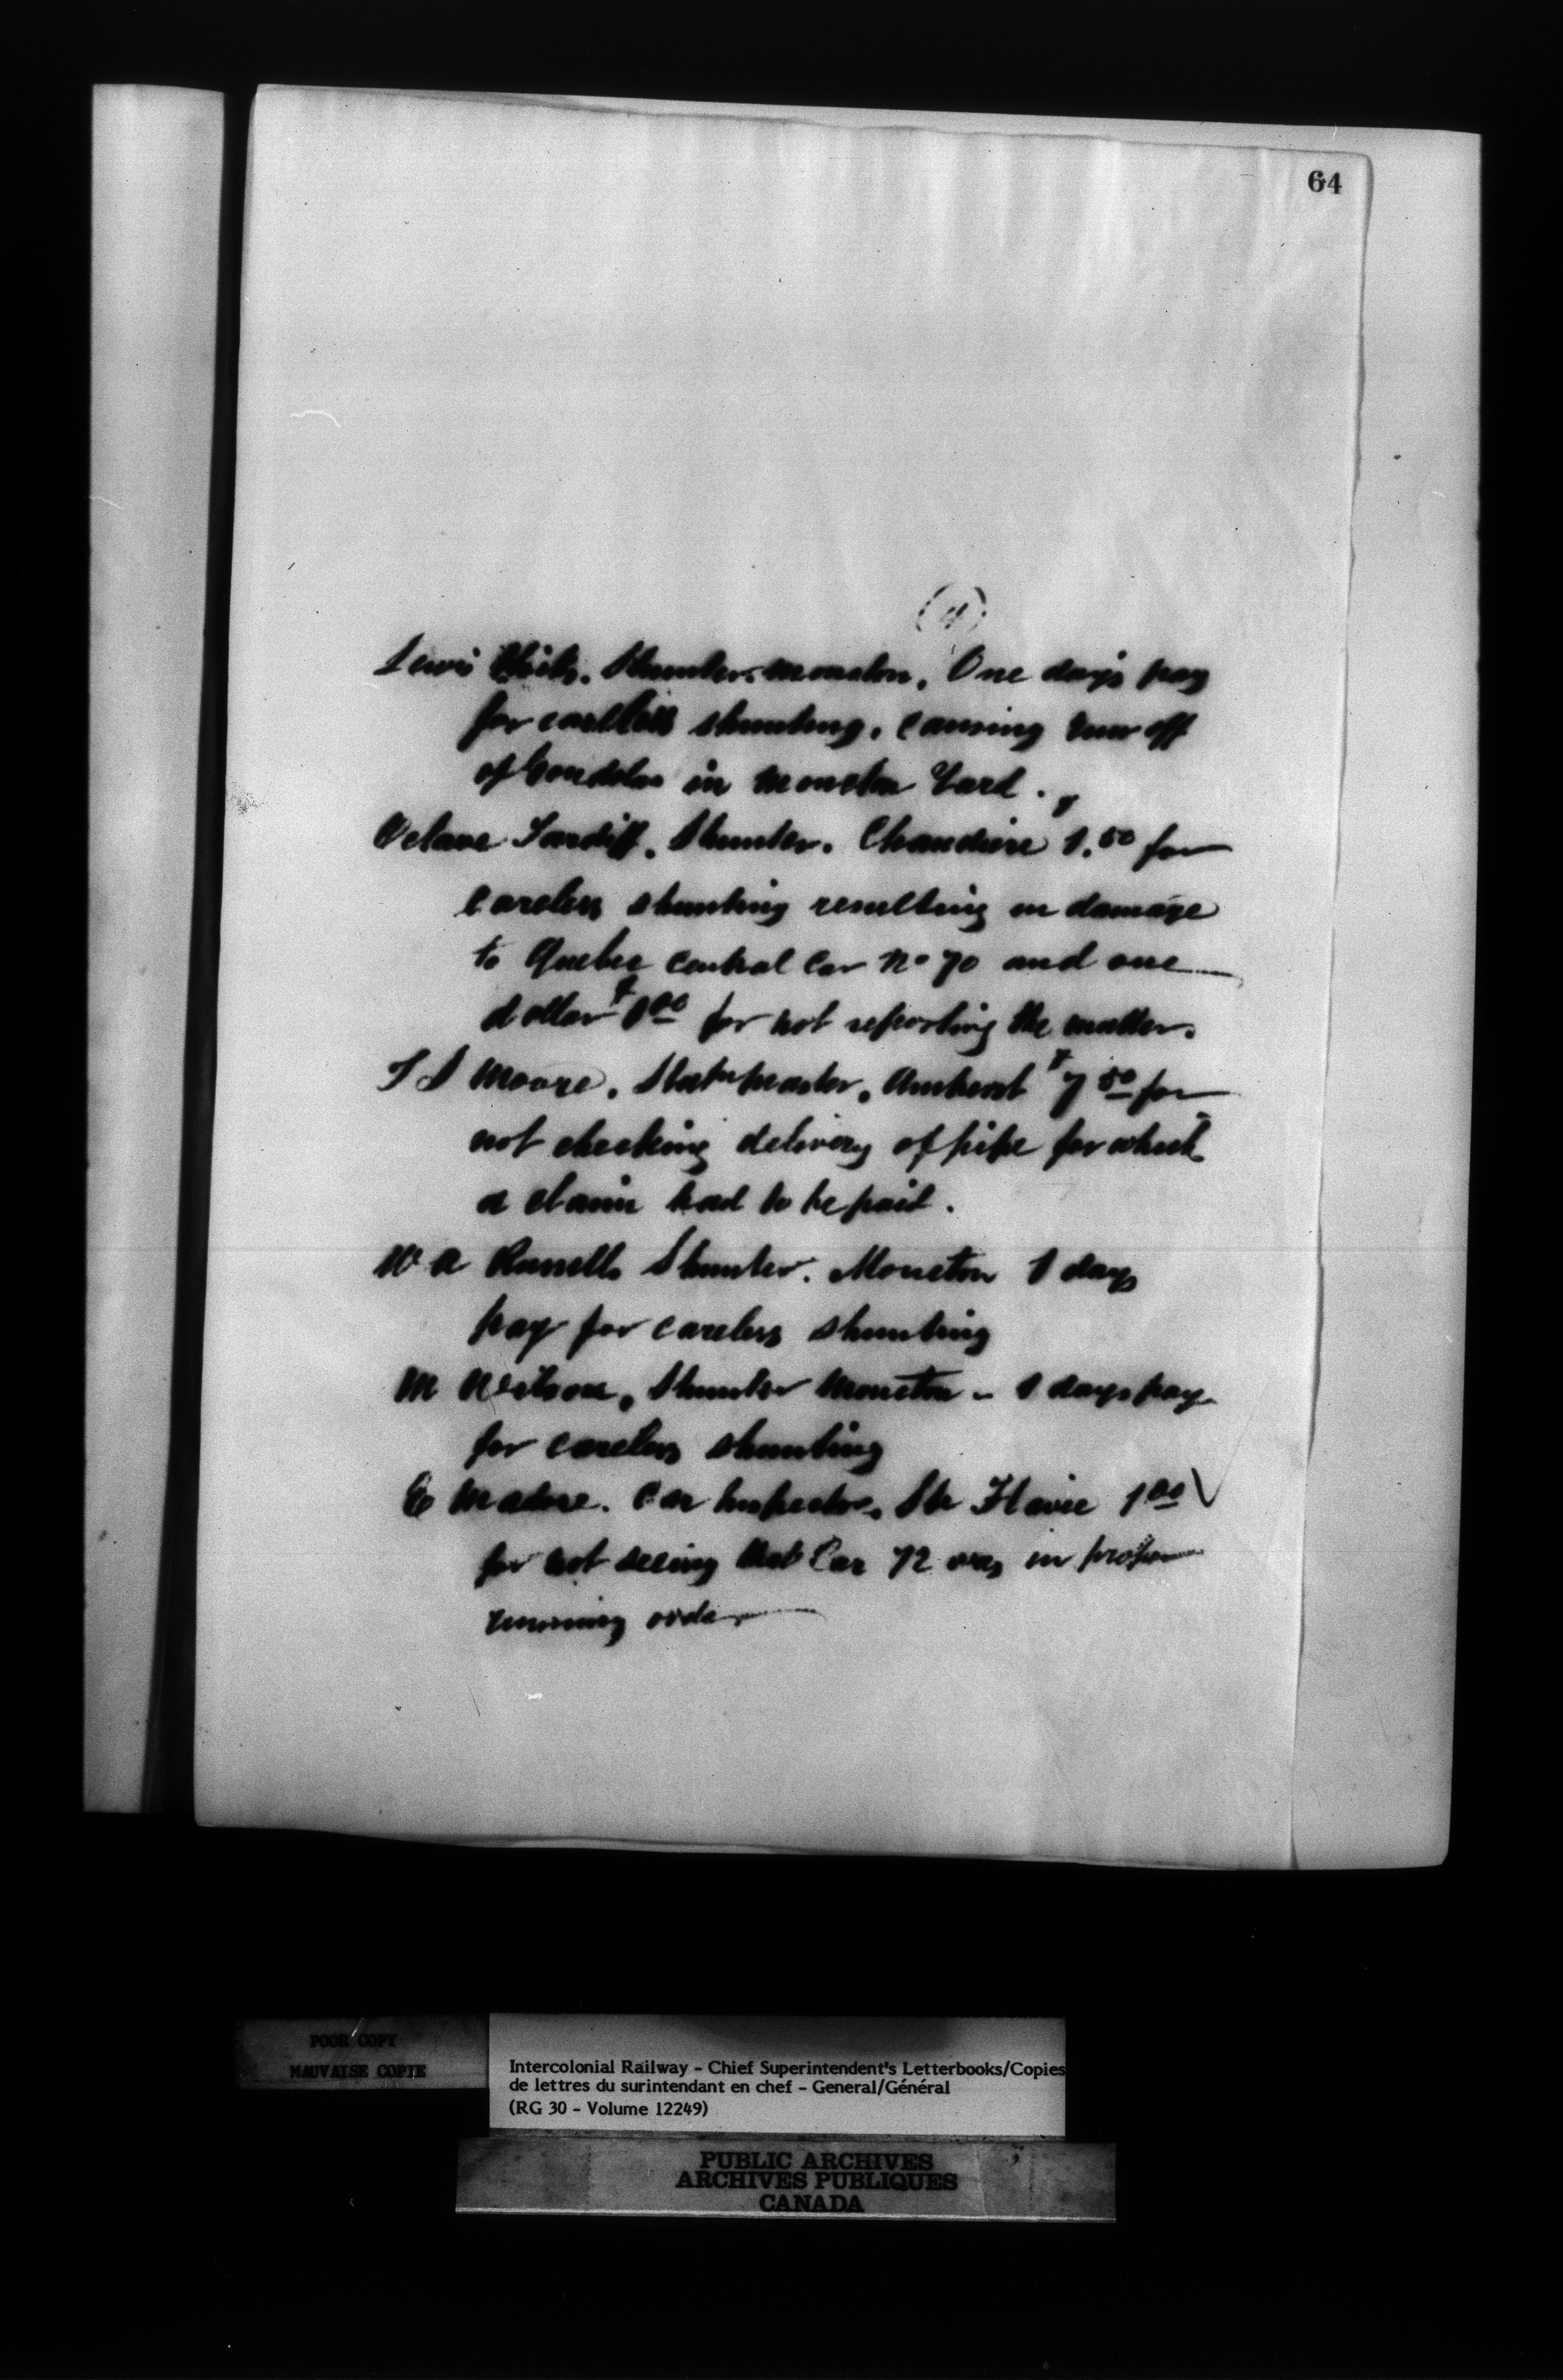 64
(4)
Lewis Shunter. Moncton. One days pay
for careless shunting. Causing run off
of Gondola in Moncton Yard.
Octave Tardiff. Shunter. Chaudiere $1.50 for
careless shunting resulting in damage
to Quebec Central Car No 70 and one
dollar $1.00 for not reporting the matter.
Moore. Stat'n master. Amherst $7.50 for
not checking delivery of pipe for which
a claim had to be paid.
W A Russell. Shunter. Moncton 1 days
pay for careless shunting
M Wilson. Shunter Moncton - 1 days pay
for careless shunting
E Madore. Car Inspector. Ste Flavie 1.00
for not seeing that Car 72 was in proper
running order
POOR COPY
MAUVAISE COPIE
Intercolonial Railway - Chief Superintendent's Letterbooks/Copies
de lettres du surintendant en chef - General/Général
(RG 30 - Volume 12249)
PUBLIC ARCHIVES
ARCHIVES PUBLIQUES
CANADA